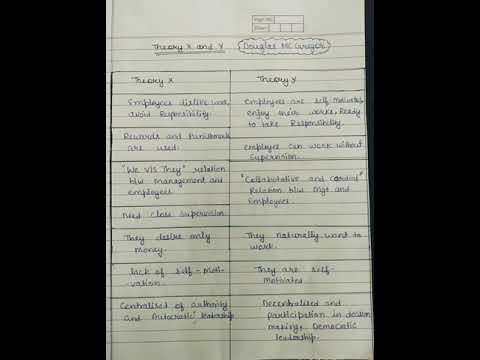 Page No.
Date
Theory X and Y
Douglas Mc Gregor
Theory X
Theory Y
Employees dislike work,
avoid Responsibility.
employees are self motivated
enjoy their works, Ready
to take Responsibility.
Rewards and Punishments
are used.
employees can work without
Supervision.
"We V/S They" relation
b/w management and
employees
"Collaborative and cordial"
Relation b/w Mgt and
Employees.
Need close Supervision
They desire only
money.
They naturally want to
work.
lack of self-moti-
vation.
They are self-
motivated
Centralised of authority
and Autocratic leadership
Decentralised and
participation in decision
making, Democratic
leadership.